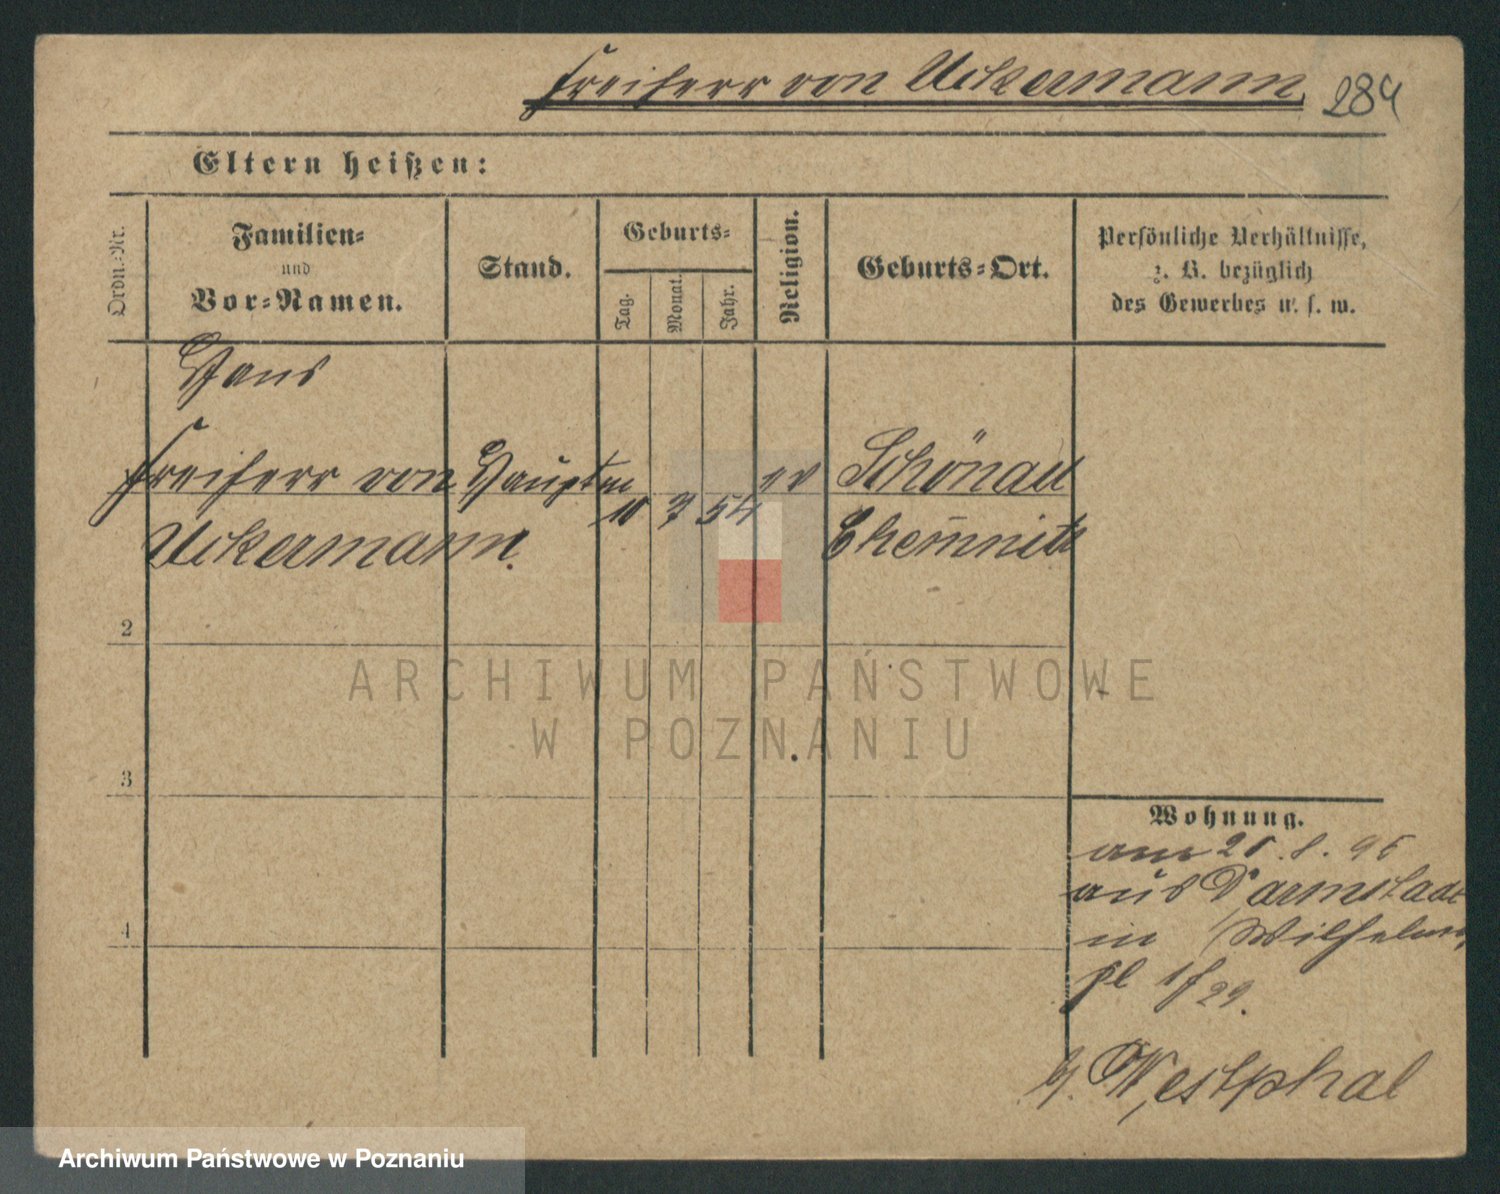 Freiherr von Uckermann
284
Eltern heißen:
Ordn.-Nr.
Familien-
und
Vor-Namen.
Stand.
Geburts-
Tag.
Monat.
Jahr.
Religion.
Geburts-Ort.
Persönliche Verhältnisse,
z. B. bezüglich
des Gewerbes u. s. w.
Hans
Freiherr von
Uckermann.
Hauptm
10 7 54
ev
Schönau
Chem̄nitz
2
3
4
Wohnung.
am 8.
aus Darmstadt
in Wilhelms
pl 1
b/. Westphal
ARCHIWUM PAŃSTWOWE
W POZNANIU
Archiwum Państwowe w Poznaniu